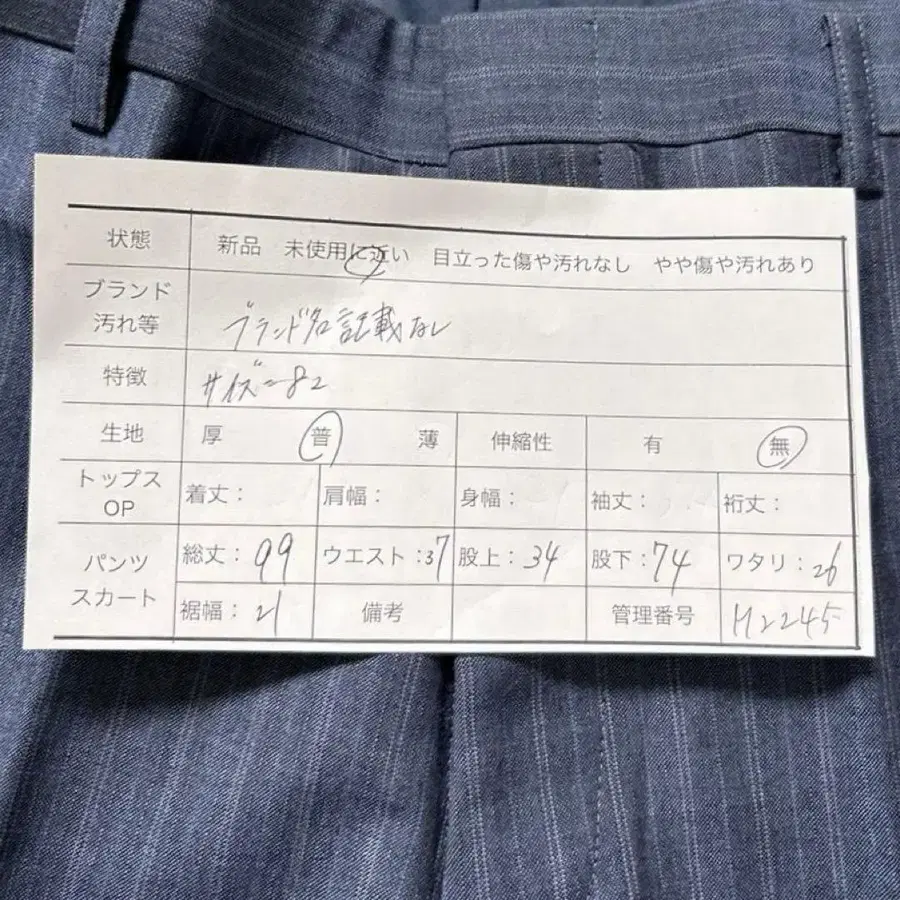 状態 新品 未使用に近い 目立った傷や汚れなし やや傷や汚れあり
ブランド
汚れ等 ブランド名記載なし
特徴 サイズ-82
生地 厚 普 薄 伸縮性 有 無
トップス
OP 着丈: 肩幅: 身幅: 袖丈: 裄丈:
パンツ
スカート 総丈:99 ウエスト:37 股上:34 股下:74 ワタリ:26
裾幅:21 備考 管理番号 H2245